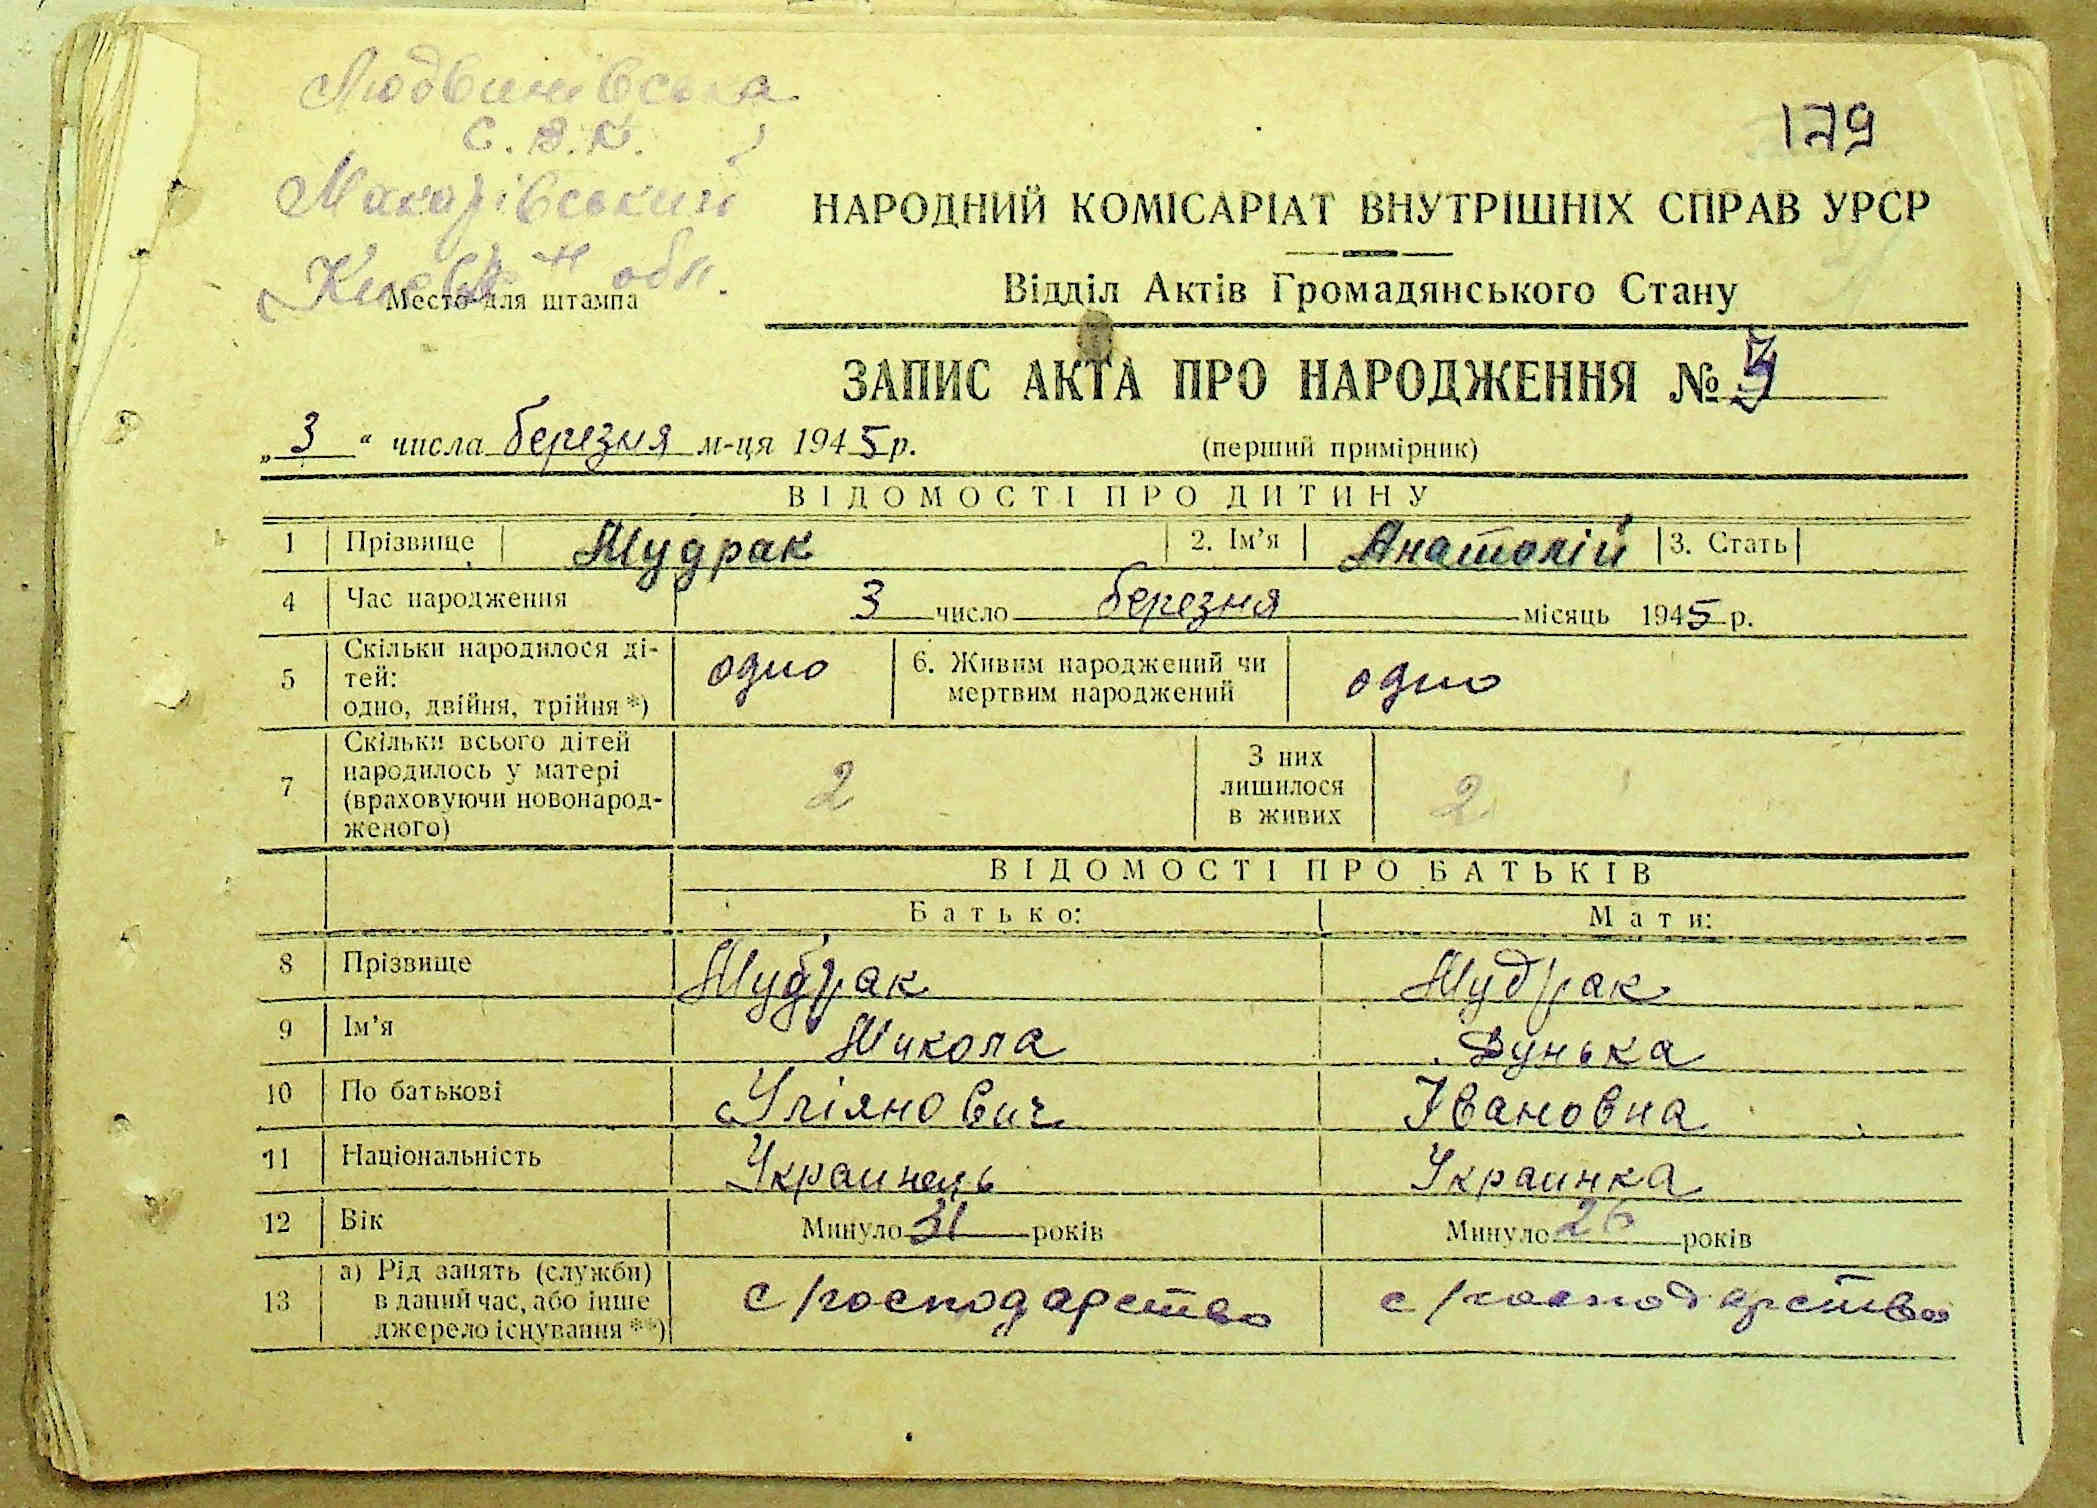 Людвинівська
с.в.к.
Макарівський
Киев обл.
Место для штампа
179
НАРОДНИЙ КОМІСАРІАТ ВНУТРІШНІХ СПРАВ УРСР
Відділ Актів Громадянського Стану
ЗАПИС АКТА ПРО НАРОДЖЕННЯ №
„3“ числа березня м-ця 1945 р.
(перший примірник)
ВІДОМОСТІ ПРО ДИТИНУ
1 Прізвище Мудрак 2. Ім’я Анатолій 3. Стать
4 Час народження 3 число березня місяць 1945 р.
5 Скільки народилося ді-
тей:
одно, двійня, трійня *)
одно
6. Живим народжений чи
мертвим народжений
одно
7 Скільки всього дітей
народилось у матері
(враховуючи новонарод-
женого)
2
З них
лишилося
в живих
2
ВІДОМОСТІ ПРО БАТЬКІВ
Батько: Мати:
8 Прізвище Мудрак Мудрак
9 Ім’я Микола Дунька
10 По батькові Уліянович Івановна
11 Національність Украинець Украинка
12 Вік Минуло 31 років Минуло 26 років
13 а) Рід занять (служби)
в даний час, або інше
джерело існування **)
с/господарство с/господарство